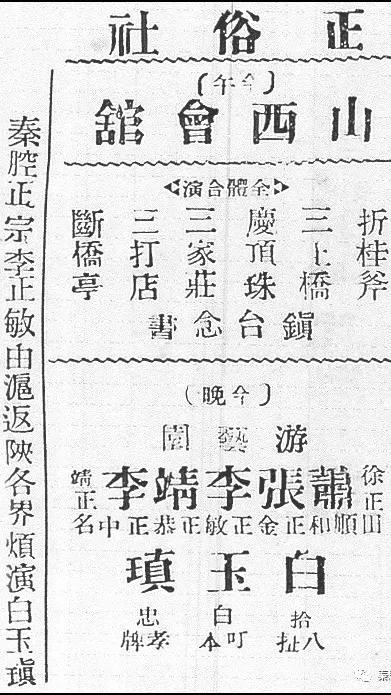 正俗社
(今午)
山西會館
全體合演
折桂斧
三上橋
慶頂珠
三家莊
三打店
斷橋亭
鎮台念書
(今晚)
游藝園
徐正田
蕭順和
張正金
李正敏
靖正恭
李正中
靖正名
白玉瑱
拾八扯
白叮本
忠孝牌
秦腔正宗李正敏由滬返陝各界煩演白玉瑱